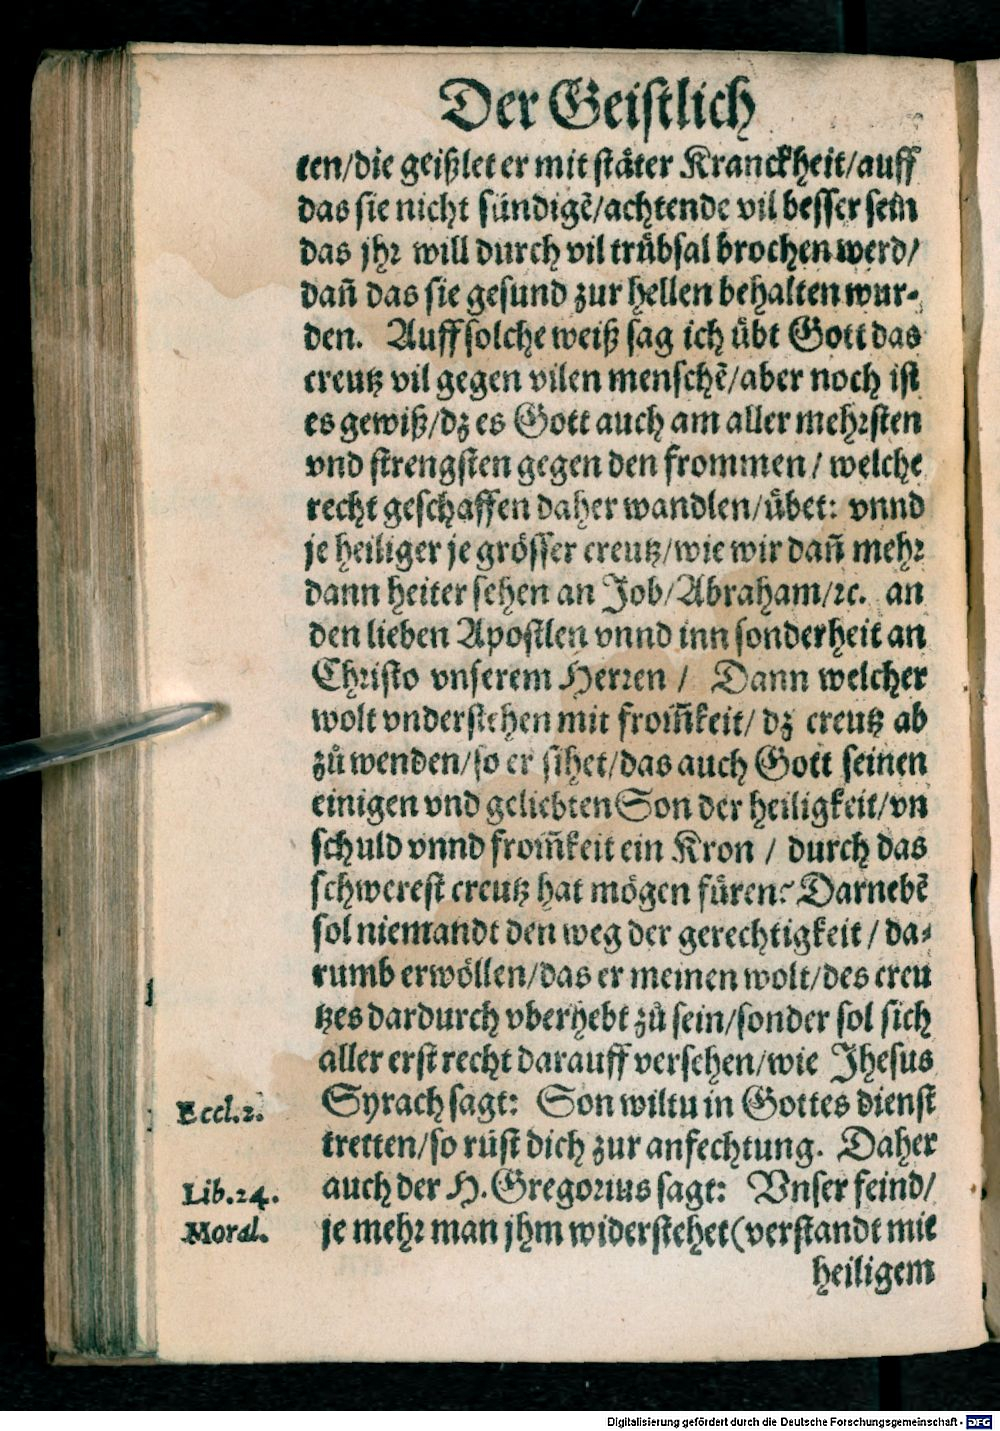 Der Geistlich
ten/die geißlet er mit stäter Kranckheit/auff
das sie nicht sündigē/achtende vil besser sein
das jhr will durch vil trübsal brochen werd/
dañ das sie gesund zur hellen behalten wur-
den. Auff solche weiß sag ich übt Gott das
creutz vil gegen vilen menschē/aber noch ist
es gewiß/dz es Gott auch am aller mehrsten
vnd strengsten gegen den frommen / welche
recht geschaffen daher wandlen/übet: vnnd
je heiliger je grösser creutz/wie wir dañ mehr
dann heiter sehen an Job/Abraham/ꝛc. an
den lieben Apostlen vnnd inn sonderheit an
Christo vnserem Herren / Dann welcher
wolt vnderstehen mit from̃keit/ dz creutz ab
zů wenden/so er sihet/das auch Gott seinen
einigen vnd geliebten Son der heiligkeit/vn
schuld vnnd from̃keit ein Kron / durch das
schwerest creutz hat mögen füren? Darnebē
sol niemandt den weg der gerechtigkeit / da-
rumb erwöllen/das er meinen wolt/des creu
tzes dardurch vberhebt zů sein/sonder sol sich
aller erst recht darauff versehen/wie Jhesus
Eccl.2. Syrach sagt: Son wiltu in Gottes dienst
tretten/so rüst dich zur anfechtung. Daher
Lib.24. auch der H. Gregorius sagt: Vnser feind/
Moral. je mehr man jhm widerstehet(verstandt mit
heiligem
Digitalisierung gefördert durch die Deutsche Forschungsgemeinschaft - DFG